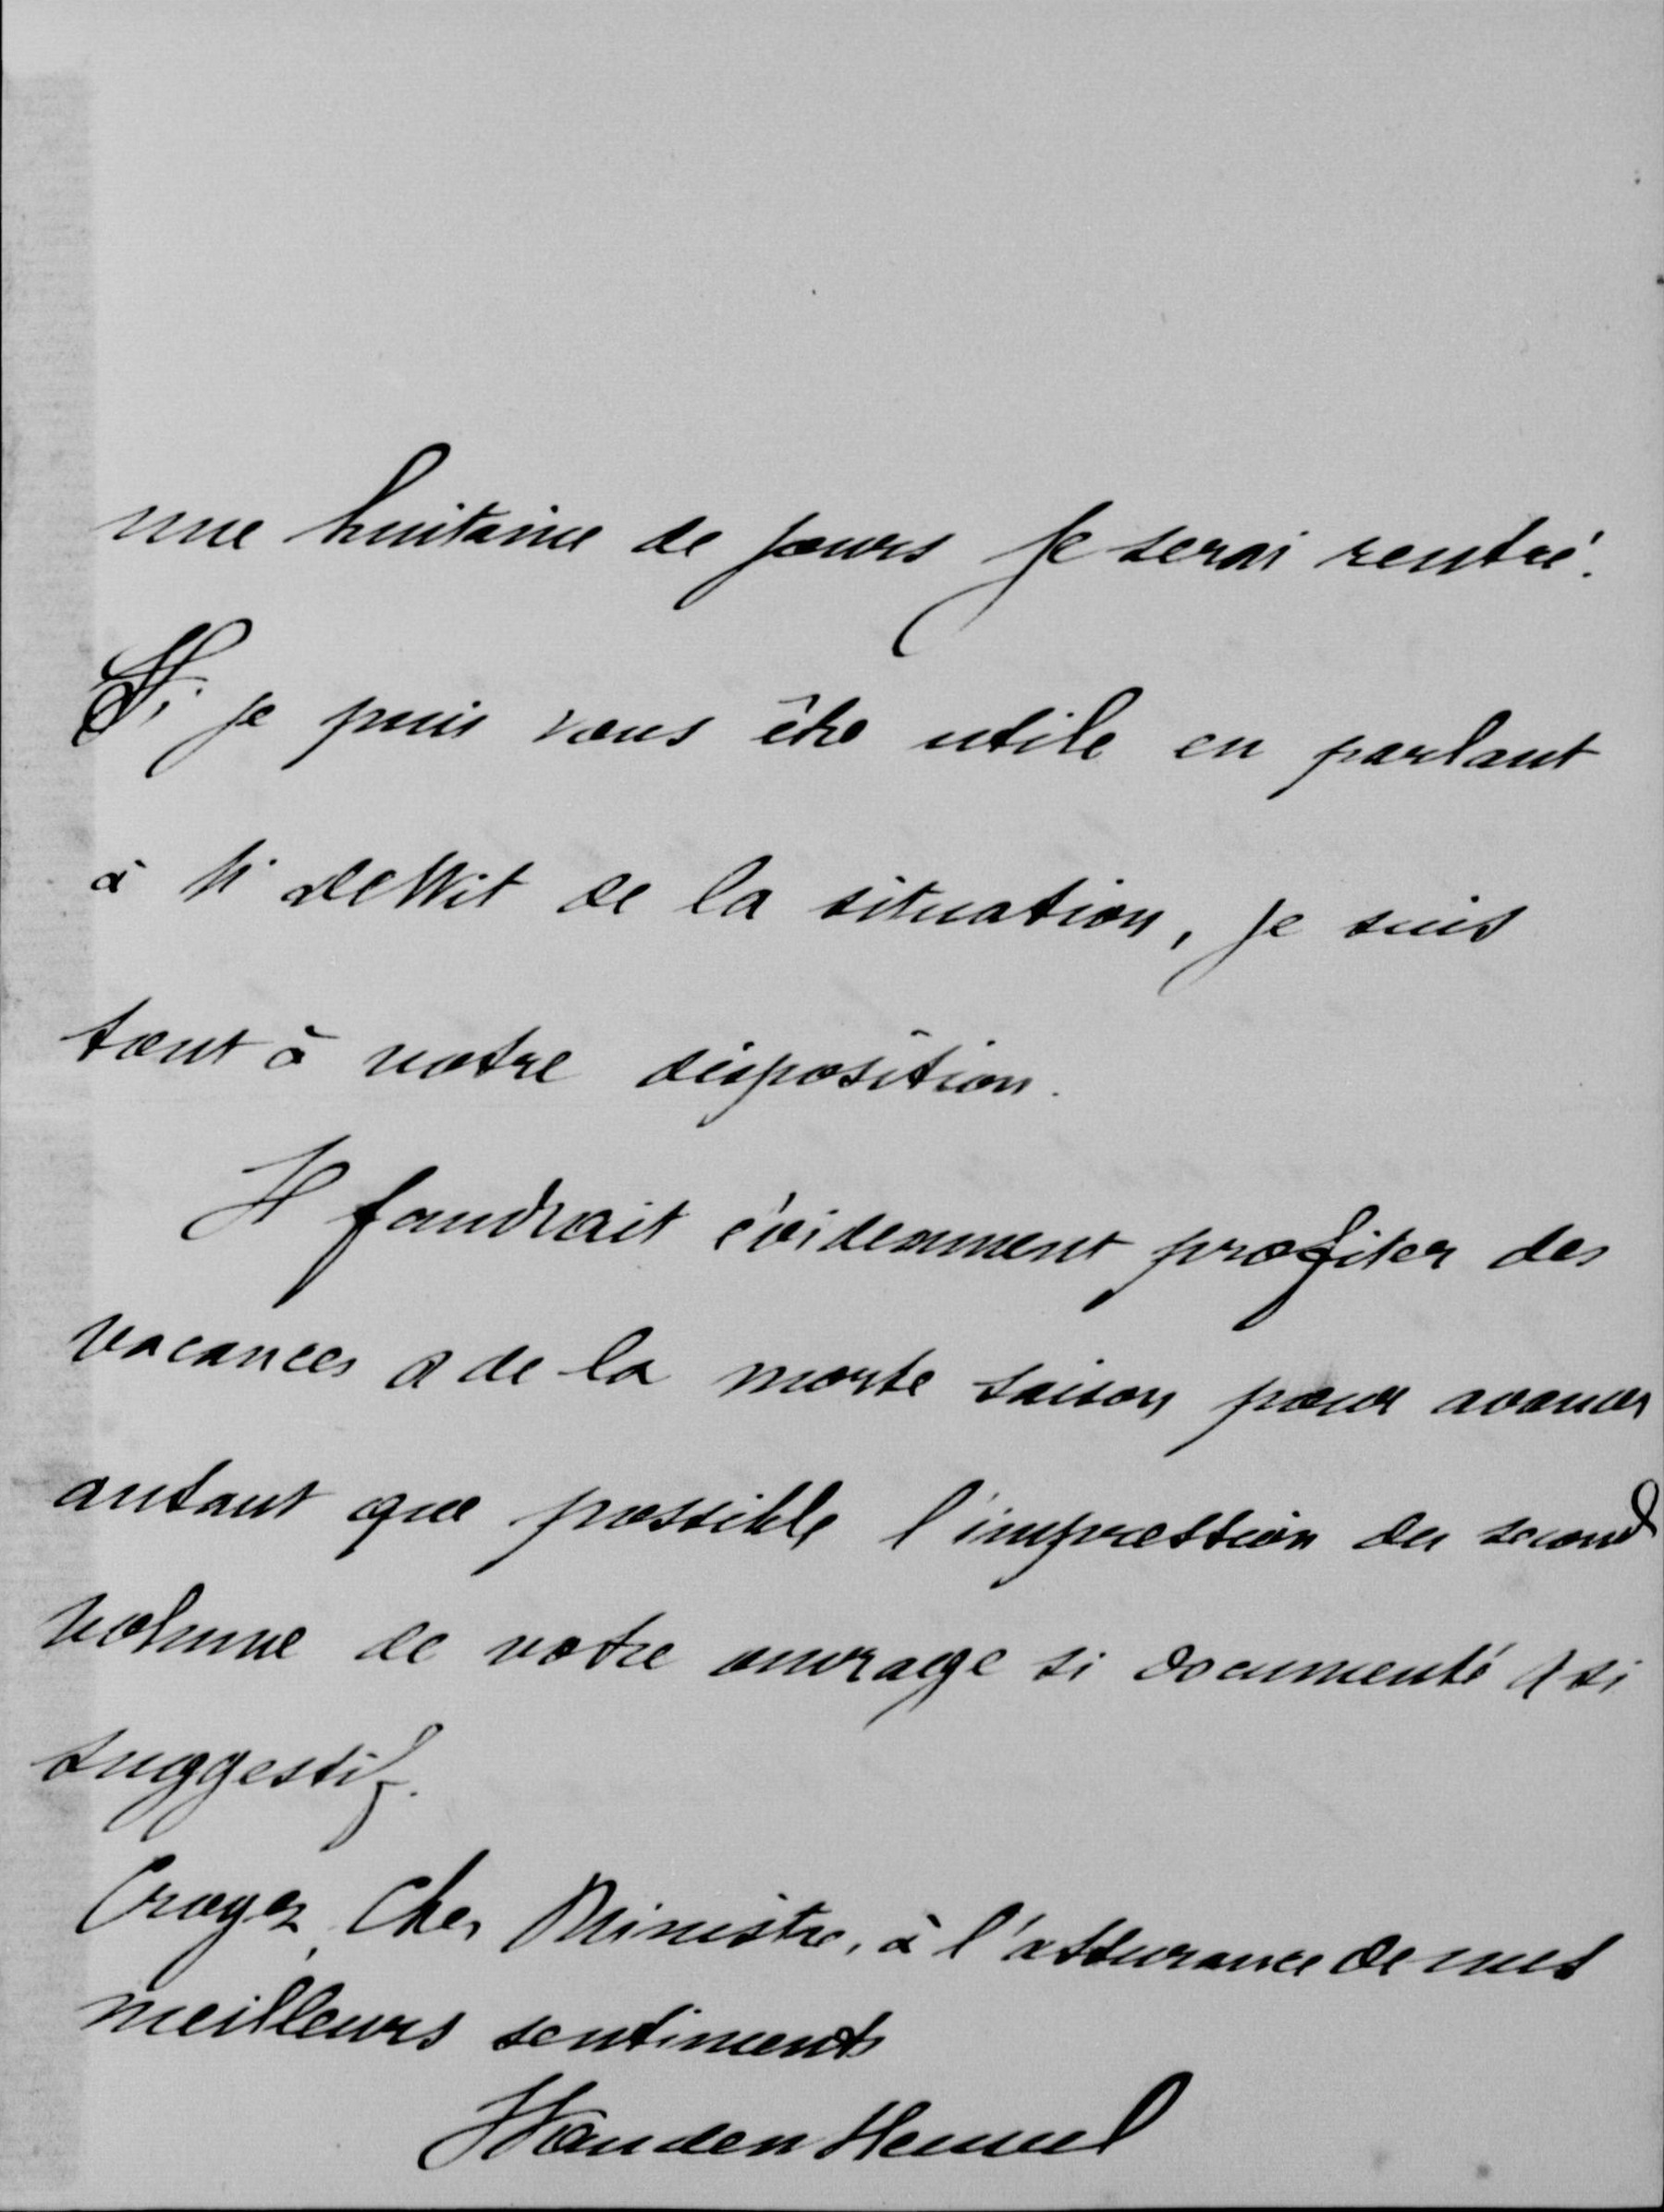 une huitaine de jours je serai rentré.
Si je puis vous être utile en parlant
à Mr DeWit de la situation, je suis
tout à votre disposition.
Il faudrait évidemment profiter des
vacances & de la morte saison pour avancer
autant que possible l'impression du second
volume de votre ouvrage si documenté & si
suggestif.
Croyez, Cher Ministre, à l'assurance de mes
meilleurs sentiments
Vanden Heuvel